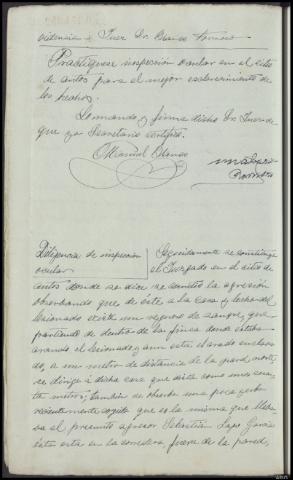 Providencia Juez Sr. Blanco Romero
Practíquese inspección ocular en el sitio
de autos para el mejor esclarecimiento
de los hechos.
Lo mandó y firma dicho Sr. Juez de
que yo Secretario certifico.
Manuel Blanco
Romero
Diligencia de inspección
ocular
Seguidamente se constituye
el Juzgado en el sitio de
autos donde se dice se cometió la agresión
observando que de éste a la casa y lecho del
lesionado existe un reguero de sangre, que
partiendo de dentro de la finca donde estaba
arando el lesionado y aun está el arado enclava
do, a un metro de distancia de la pared norte,
se dirige a dicha casa que dista como unos cuaren
ta metros; también se observa una poca yerba
recientemente cogida que es la misma que lleva
ba el presunto agresor Sebastián Lago García
ésta está en la carretera, fuera de la pared,